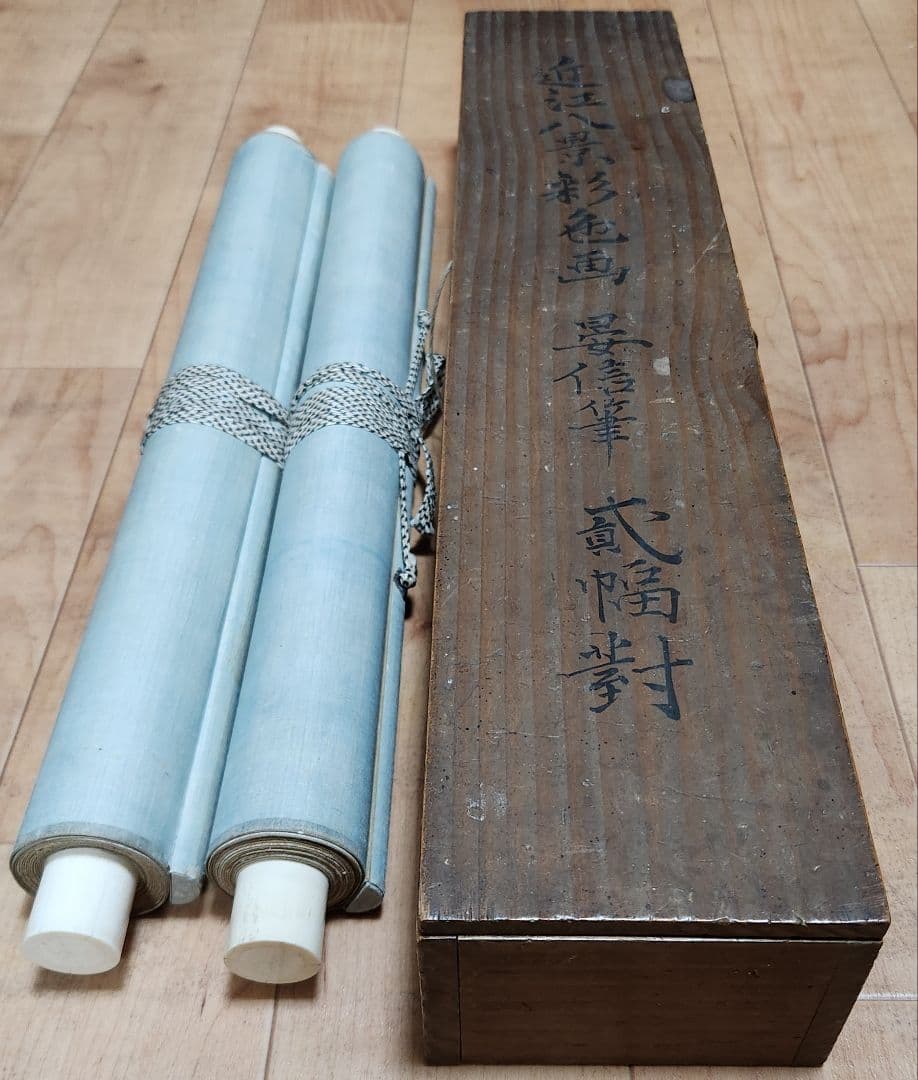 近江八景彩色画 晏信筆 貳幅對